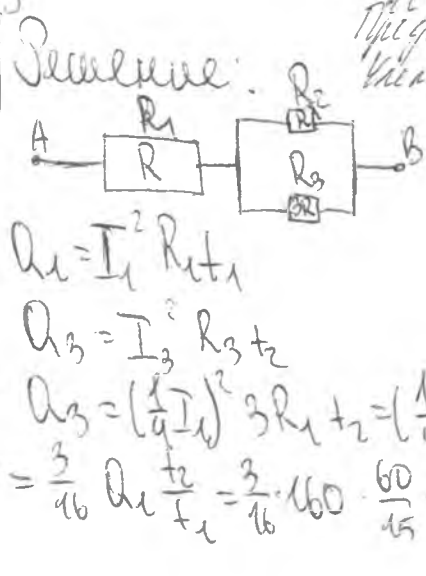 Решение:
R₁ R₂
A R R B
R₃
3R
Q₁ = I₁² R₁ t₁
Q₃ = I₃² R₃ t₂
Q₃ = (1/4 I₁)² 3R₁ t₂ = (
= 3/16 Q₁ t₂/t₁ = 3/16 · 160 · 60/15